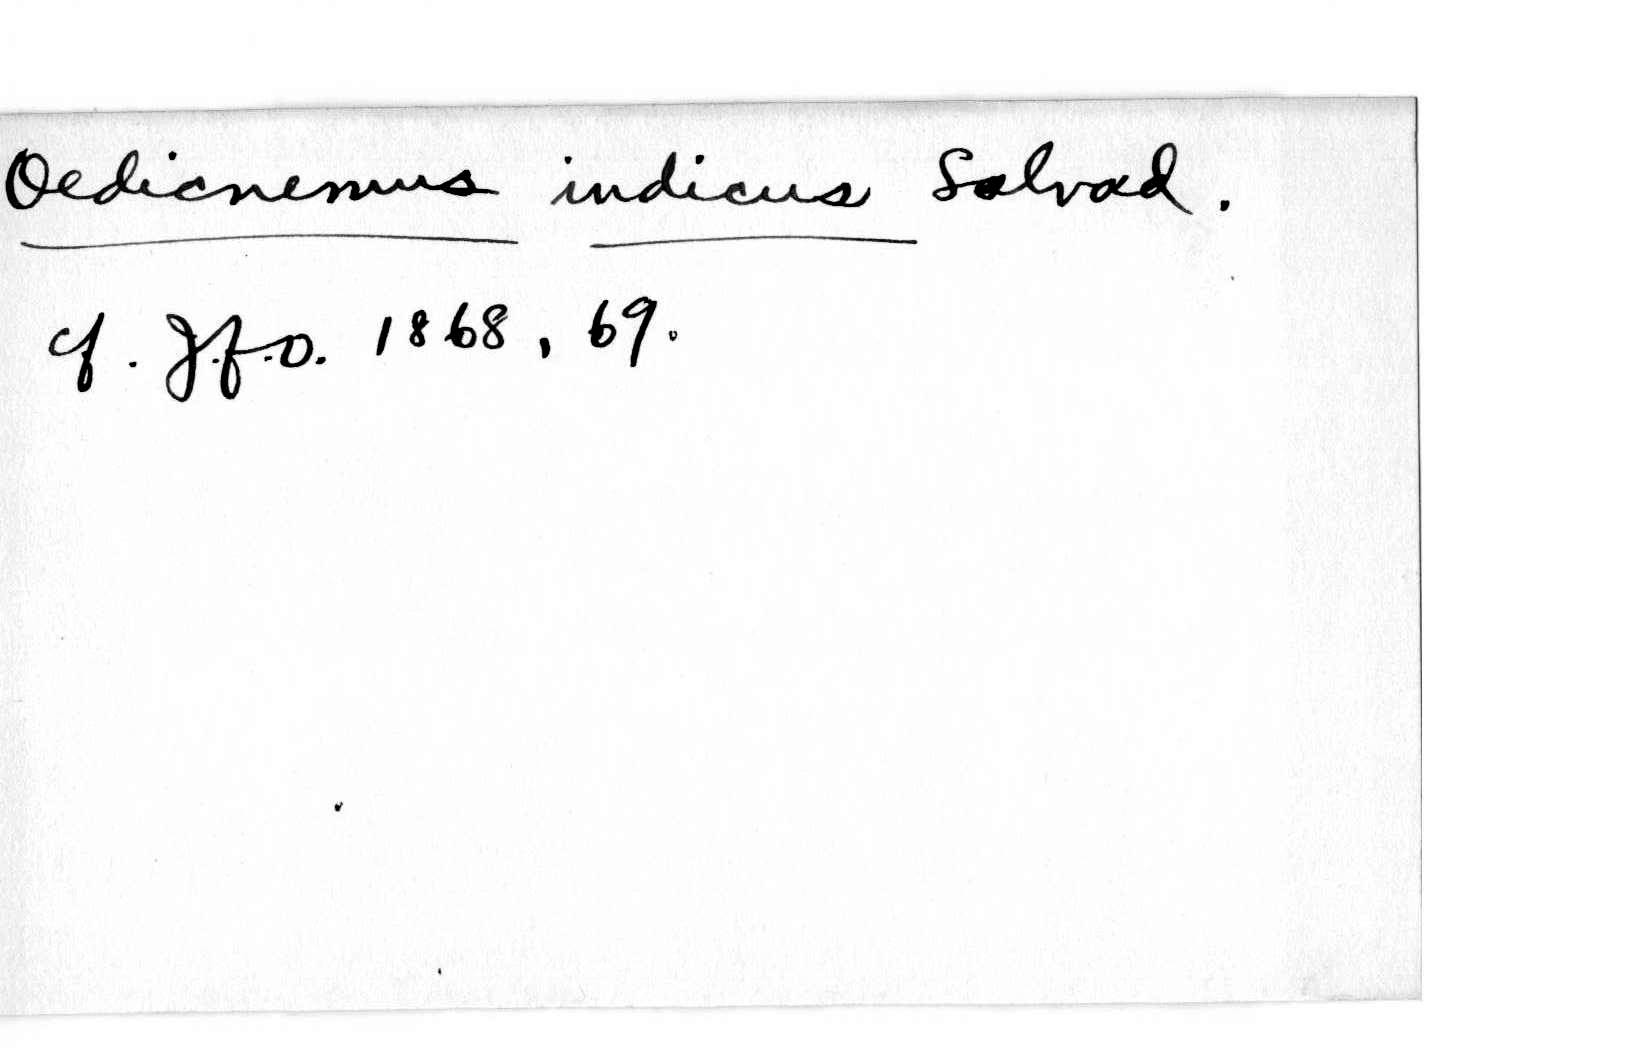 Oedicnemus indicus Salvad.
cf. J.f.O. 1868, 69.